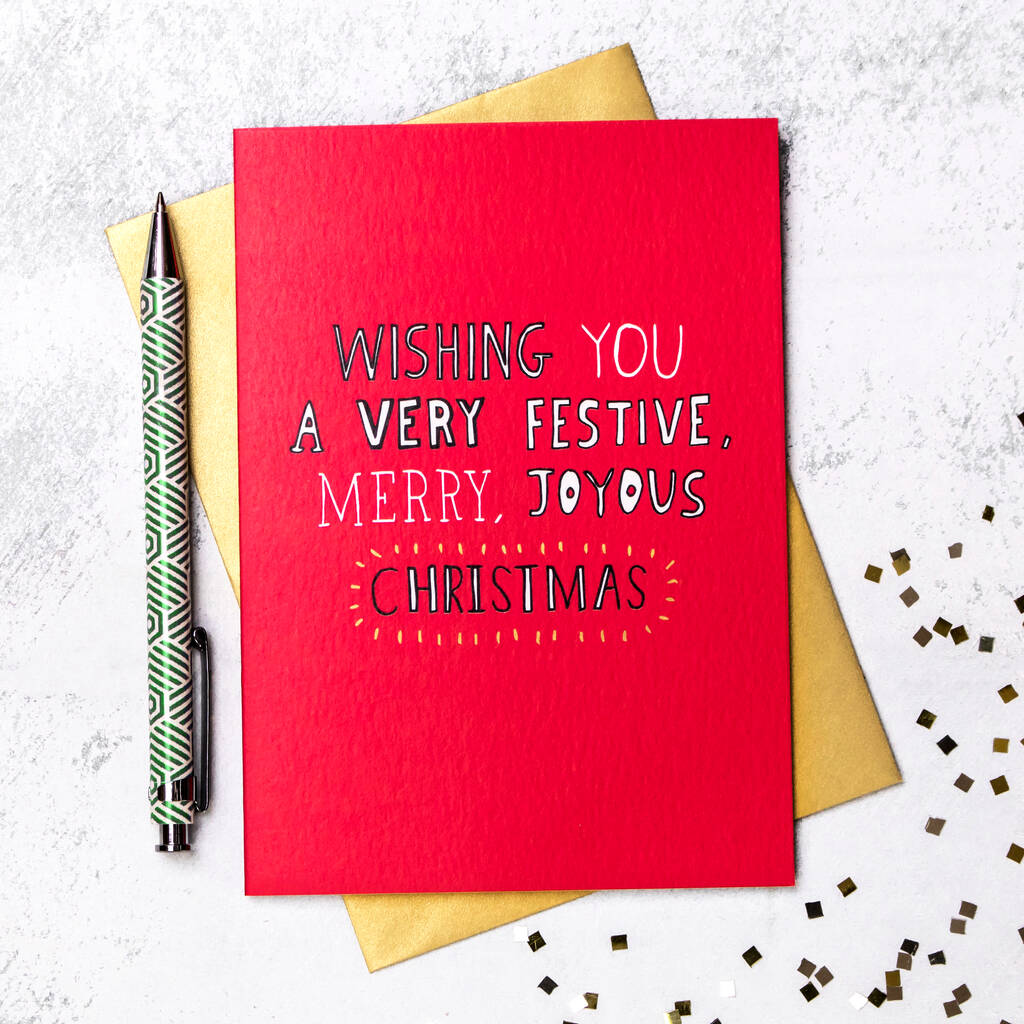 WISHING YOU
A VERY FESTIVE,
MERRY, JOYOUS
CHRISTMAS